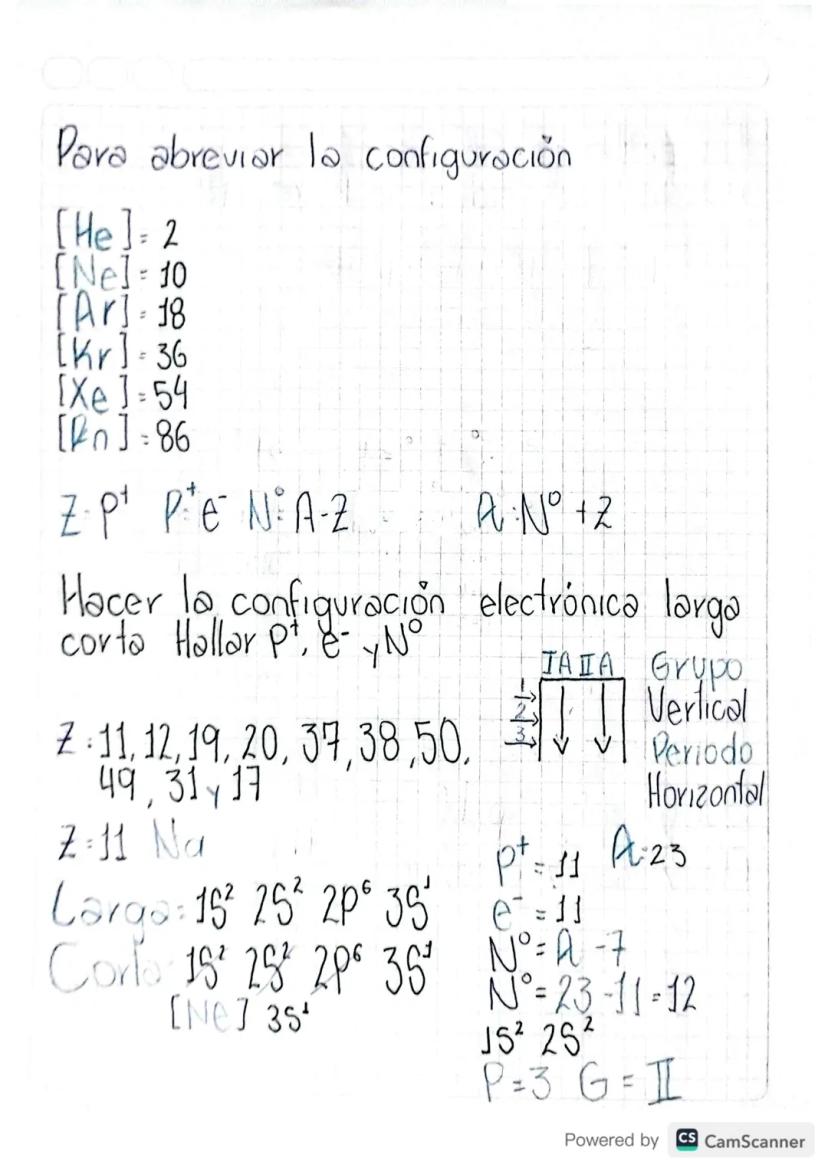 Para abreviar la configuración
[He] = 2
[Ne] = 10
[Ar] = 18
[Kr] = 36
[Xe] = 54
[Rn] = 86
Z=P⁺ P⁺=e⁻ N°=A-Z A=N°+Z
Hacer la configuración electrónica larga
corta Hallar P⁺, e⁻ y N°
IA IIA Grupo
1 Vertical
2 Periodo
3 Horizontal
Z=11, 12, 19, 20, 37, 38, 50,
49, 31 y 17
Z=11 Na
Larga: 1S² 2S² 2P⁶ 3S¹
Corta 1S² 2S² 2P⁶ 3S¹
[Ne] 3S¹
P⁺=11 A=23
e⁻=11
N°=A-7
N°=23-11=12
1S² 2S²
P=3 G=II
Powered by CS CamScanner